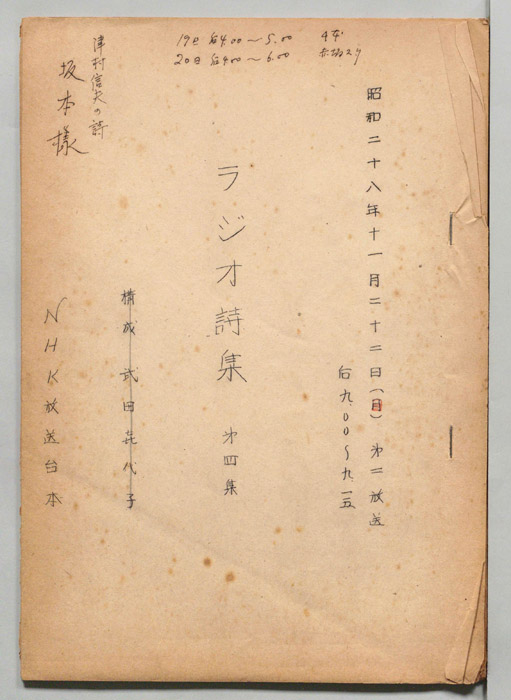 19日 后4.00〜5.00
20日 后4.00〜6.00
4本
昭和二十八年十一月二十二日(日)第二放送
后九.00〜九.一五
ラジオ詩集 第四集
構成 武田喜代子
津村信夫の詩
坂本様
NHK放送台本